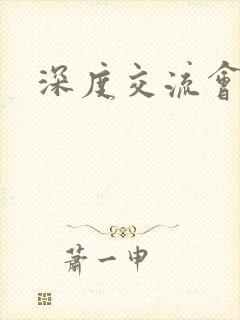 深度交流會
蕭一申